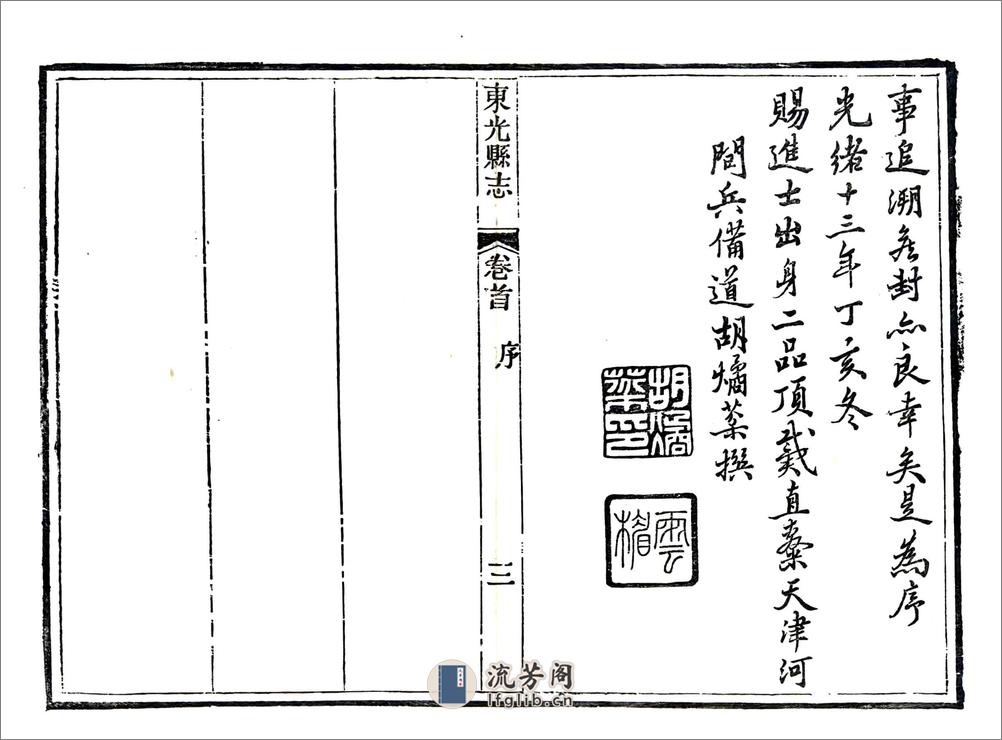 事追溯矣封亦良幸矣是為序
光緒十三年丁亥冬
賜進士出身二品頂戴直隸天津河
間兵備道胡燏棻撰
胡燏棻印
雲楣
東光縣志
卷首
序
三
流芳阁
lfglib.cn